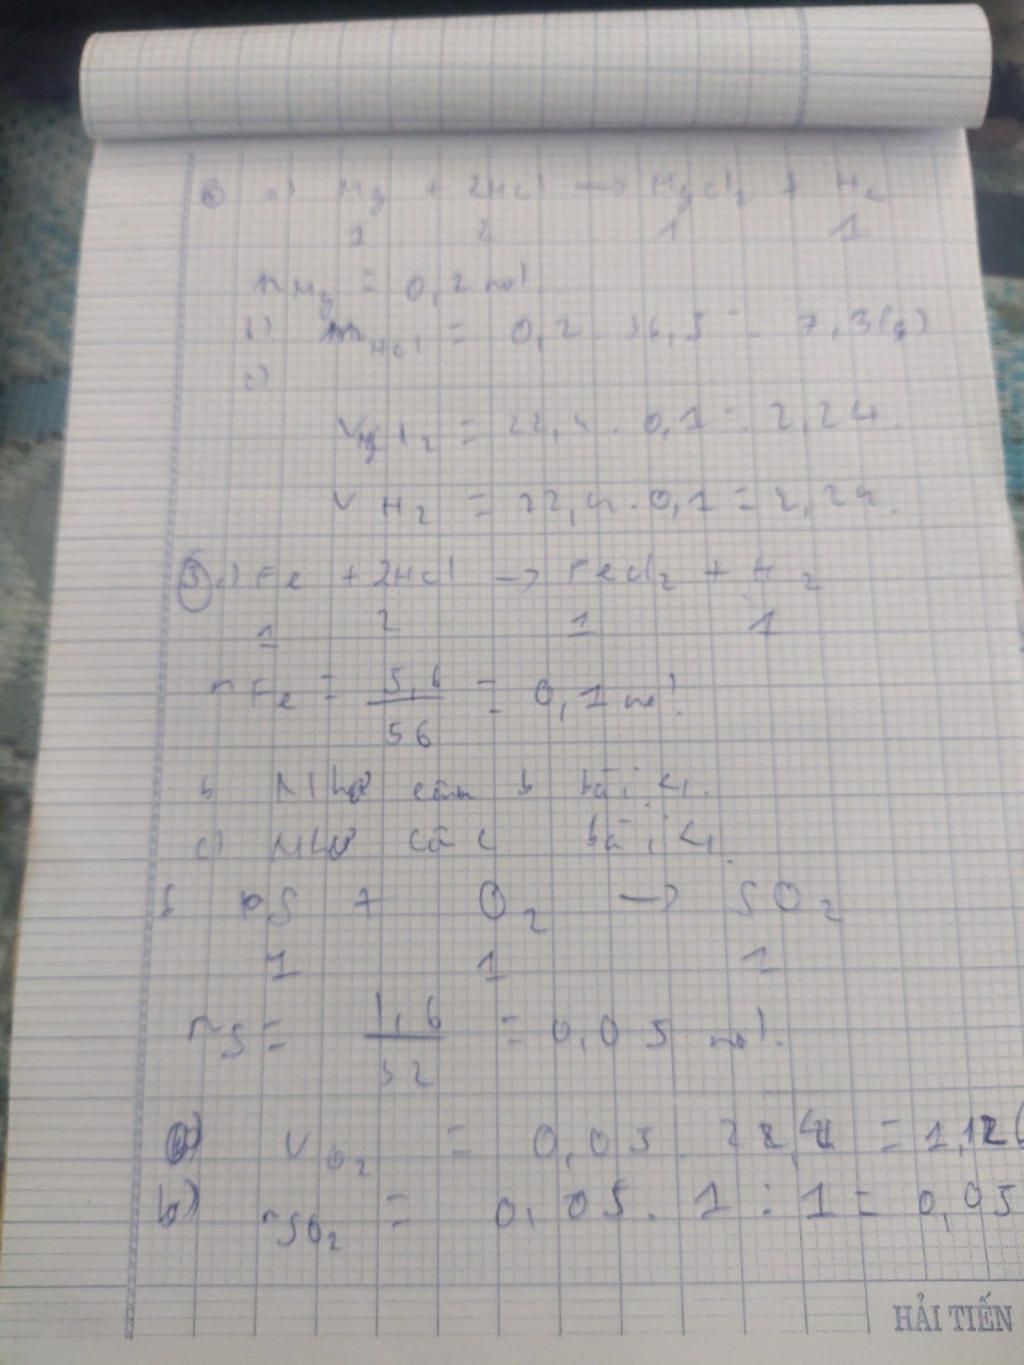 a) Mg + 2HCl → MgCl2 + H2
1 2 1 1
nMg = 0,2 mol
b) mHCl = 0,2 . 36,5 = 7,3(g)
c)
VMgCl2 = 22,4 . 0,1 = 2,24.
VH2 = 22,4 . 0,1 = 2,24.
5 a) Fe + 2HCl → FeCl2 + H2
1 2 1 1
nFe = 5,6/56 = 0,1 mol.
b Như câu b bài 4.
c) Như câ c bài 4.
6 S + O2 → SO2
1 1 1
nS = 1,6/32 = 0,05 mol.
a) VO2 = 0,05 . 22,4 = 1,12(
b) nSO2 = 0,05 . 1 : 1 = 0,05
HẢI TIẾN